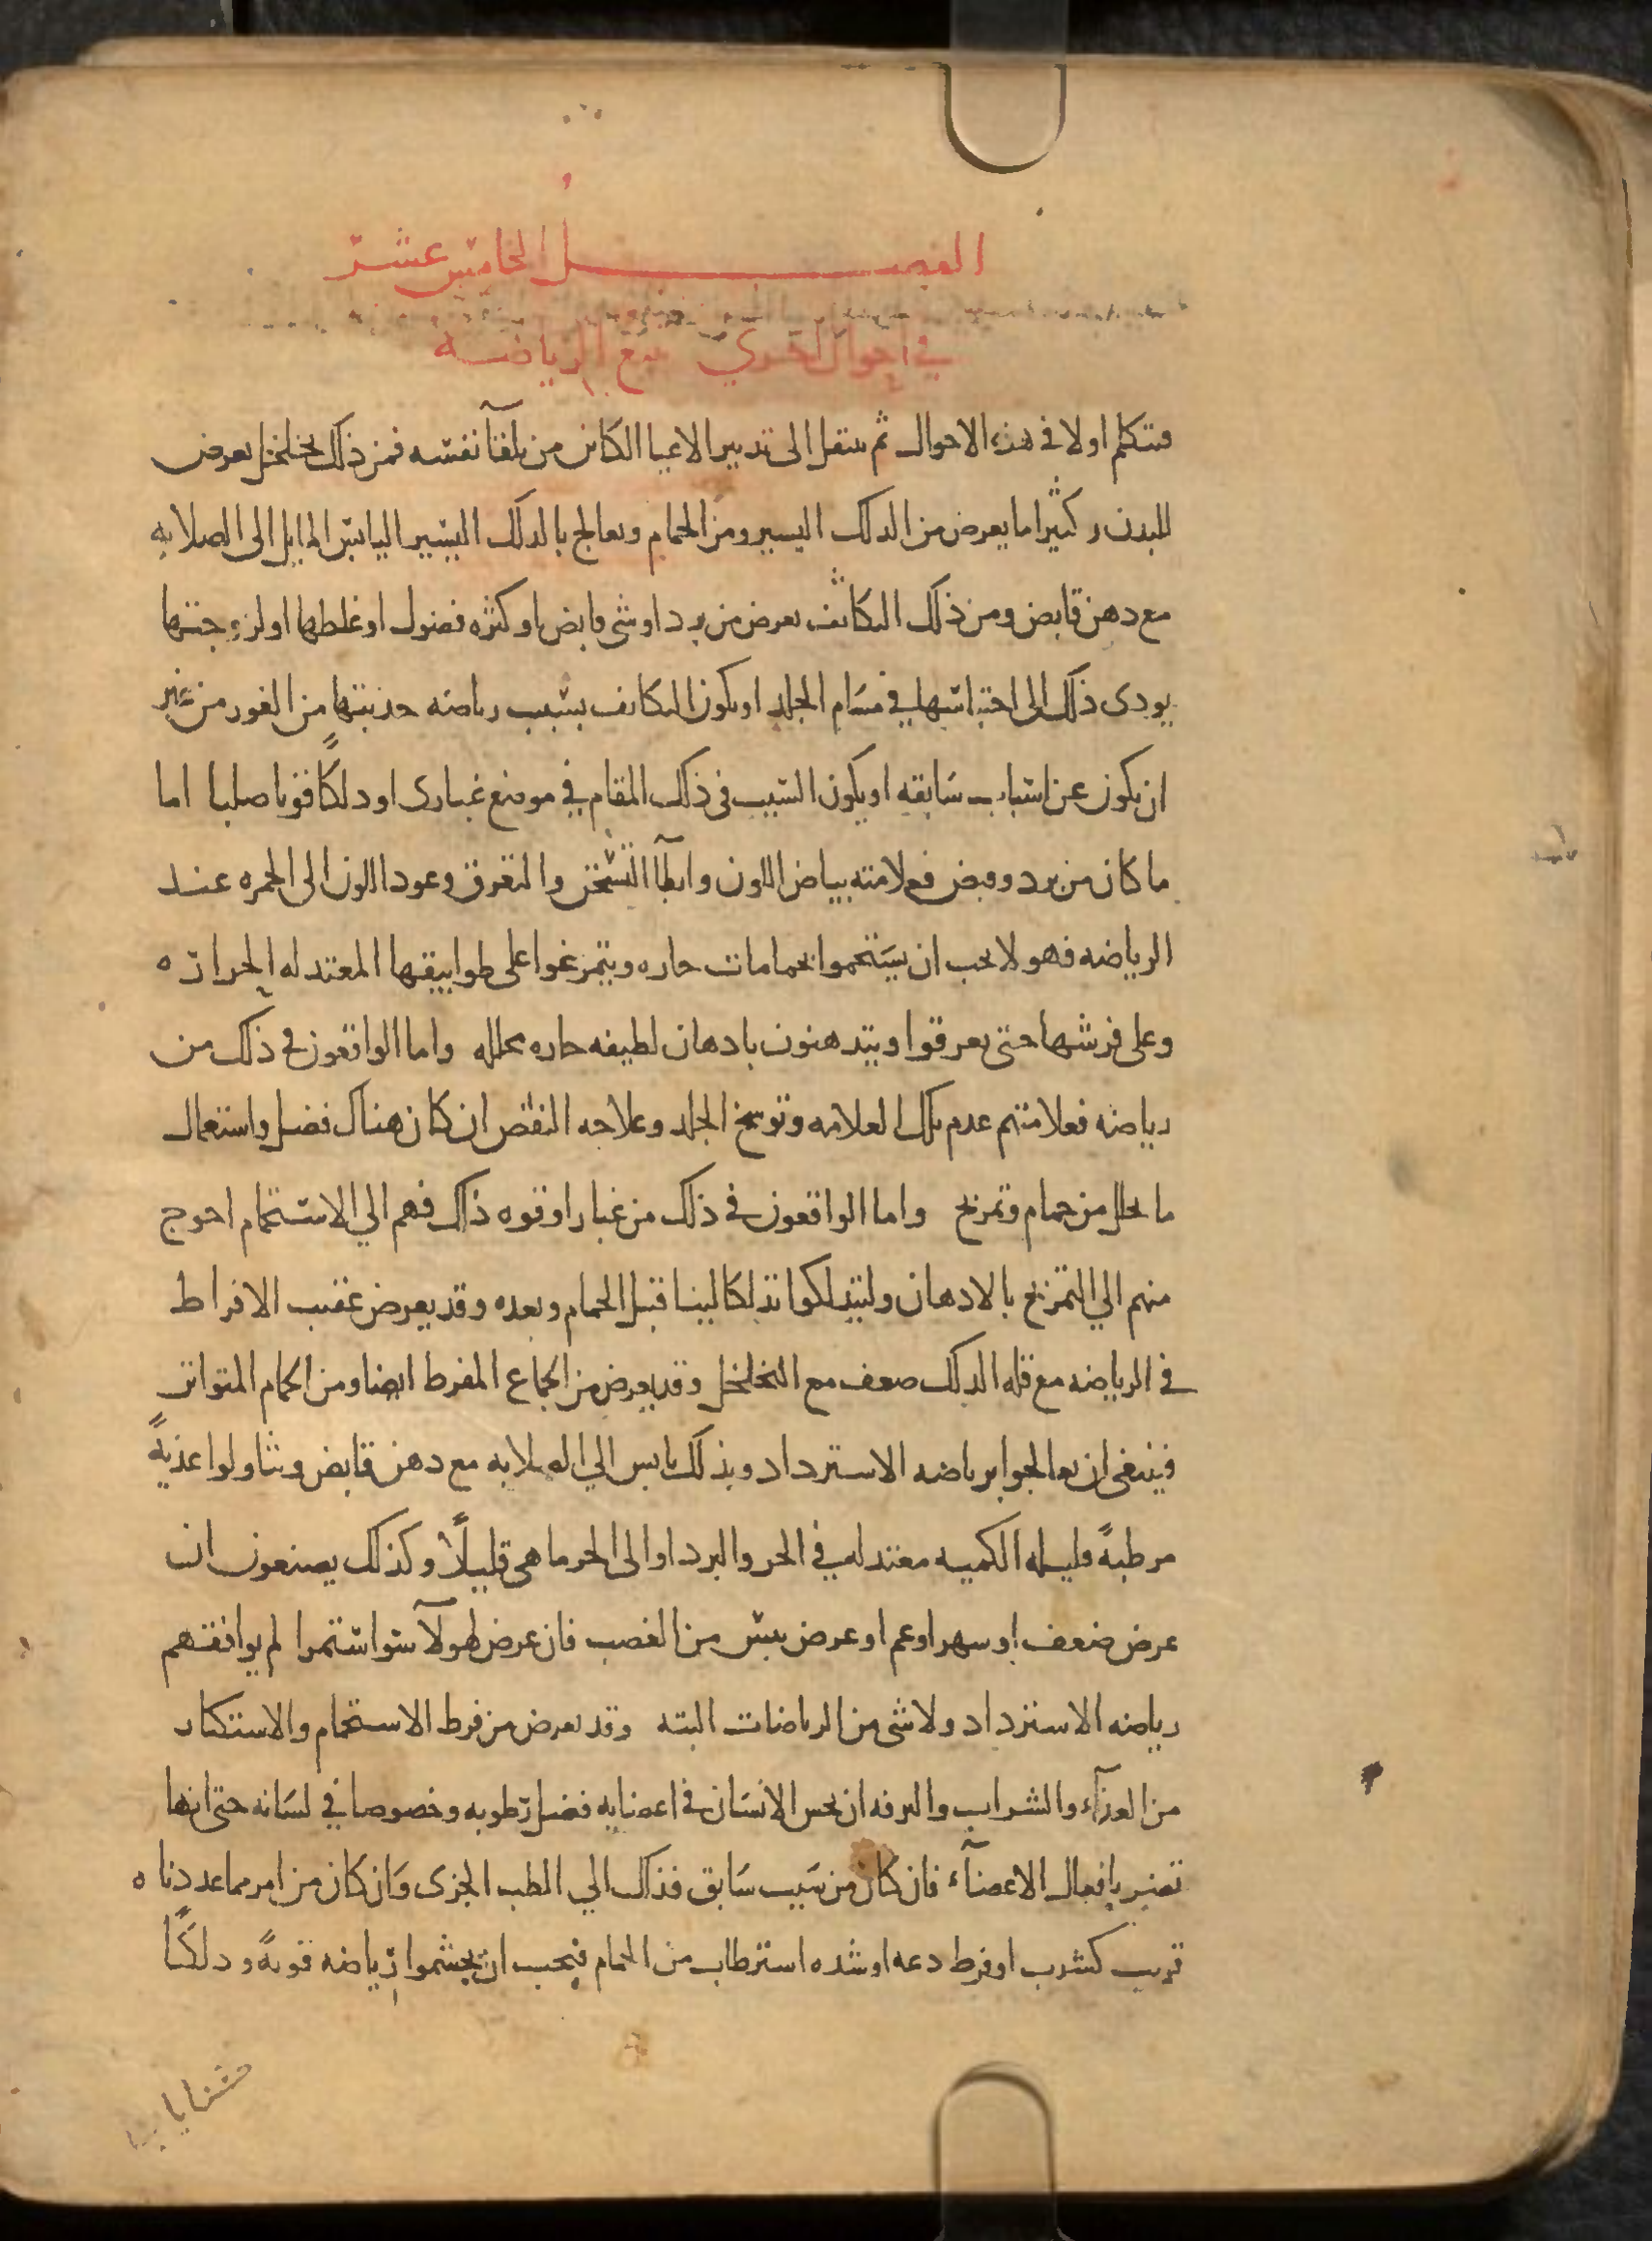 الفصل الخامس عشر
في احوال اخرى تتبع الرياضه
فنتكلم اولا في هذه الاحوال ثم ننتقل الى تدبير الاعيا الكائن من تلقآ نفسه فمن ذلك تخلخل يعرض
للبدن وكثيرا ما يعرض من الدلك اليسير ومن الحمام ويعالج بالدلك اليسير اليابس المايل الى الصلابه
مع دهن قابض ومن ذلك التكاثف يعرض من برد او شى قابض او كثره فضول او غلظها او لزوجتها
يودى ذلك الى احتباسها في مسام الجلد او يكون التكاثف بسبب رياضه جذبتها من الغور من غير
ان يكون عن اسباب سابقه او يكون السبب في ذلك المقام في موضع غبارى او دلكًا قويا صلبا اما
ما كان من برد وقبض فعلامته بياض اللون وابطآ التسخن والتعرق وعود اللون الى الحمره عند
الرياضه فهولا يجب ان يستحموا بحمامات حاره ويتمرغوا على طوابيقها المعتدله الحراره
وعلى فرشها حتى يعرقوا ويتدهنون بادهان لطيفه حاره محلله واما الواقعون في ذلك من
رياضه فعلامتهم عدم تلك العلامه وتوسخ الجلد وعلاجه النفض ان كان هناك فضل واستعمال
ما يحلل من حمام وتمريخ واما الواقعون في ذلك من غبار او قوه ذلك فهم الي الاستحمام احوج
منهم الي التمريخ بالادهان وليتدلكوا تدلكا لينا قبل الحمام وبعده وقد يعرض عقيب الافراط
في الرياضه مع قله الدلك ضعف مع التخلخل وقد يعرض من الجماع المفرط ايضا ومن الحمام المتواتر
فينبغى ان يعالجوا برياضه الاسترداد وبدلك يابس الي الصلابه مع دهن قابض ويتناولوا اغذيةً
مرطبةً قليله الكميه معتدله في الحر والبرد او الى الحر ما هى قليلًا وكذلك يصنعون ان
عرض ضعف او سهر او غم او عرض يبس من الغضب فان عرض لهولآ سو استمرا لم يوافقهم
رياضه الاسترداد ولا شى من الرياضات البته وقد يعرض من فرط الاستحمام والاستكثار
من الغذآء والشراب والترفه ان يحس الانسان في اعضايه فضل رطوبه وخصوصا في لسانه حتى انها
تضر بافعال الاعضآء فان كان من سبب سابق فذلك الي الطب الجزى وان كان من امر مما عددناه
قريب كشرب او فرط دعه او شده استرطاب من الحمام فيجب ان يجشموا رياضه قويةً ودلكًا